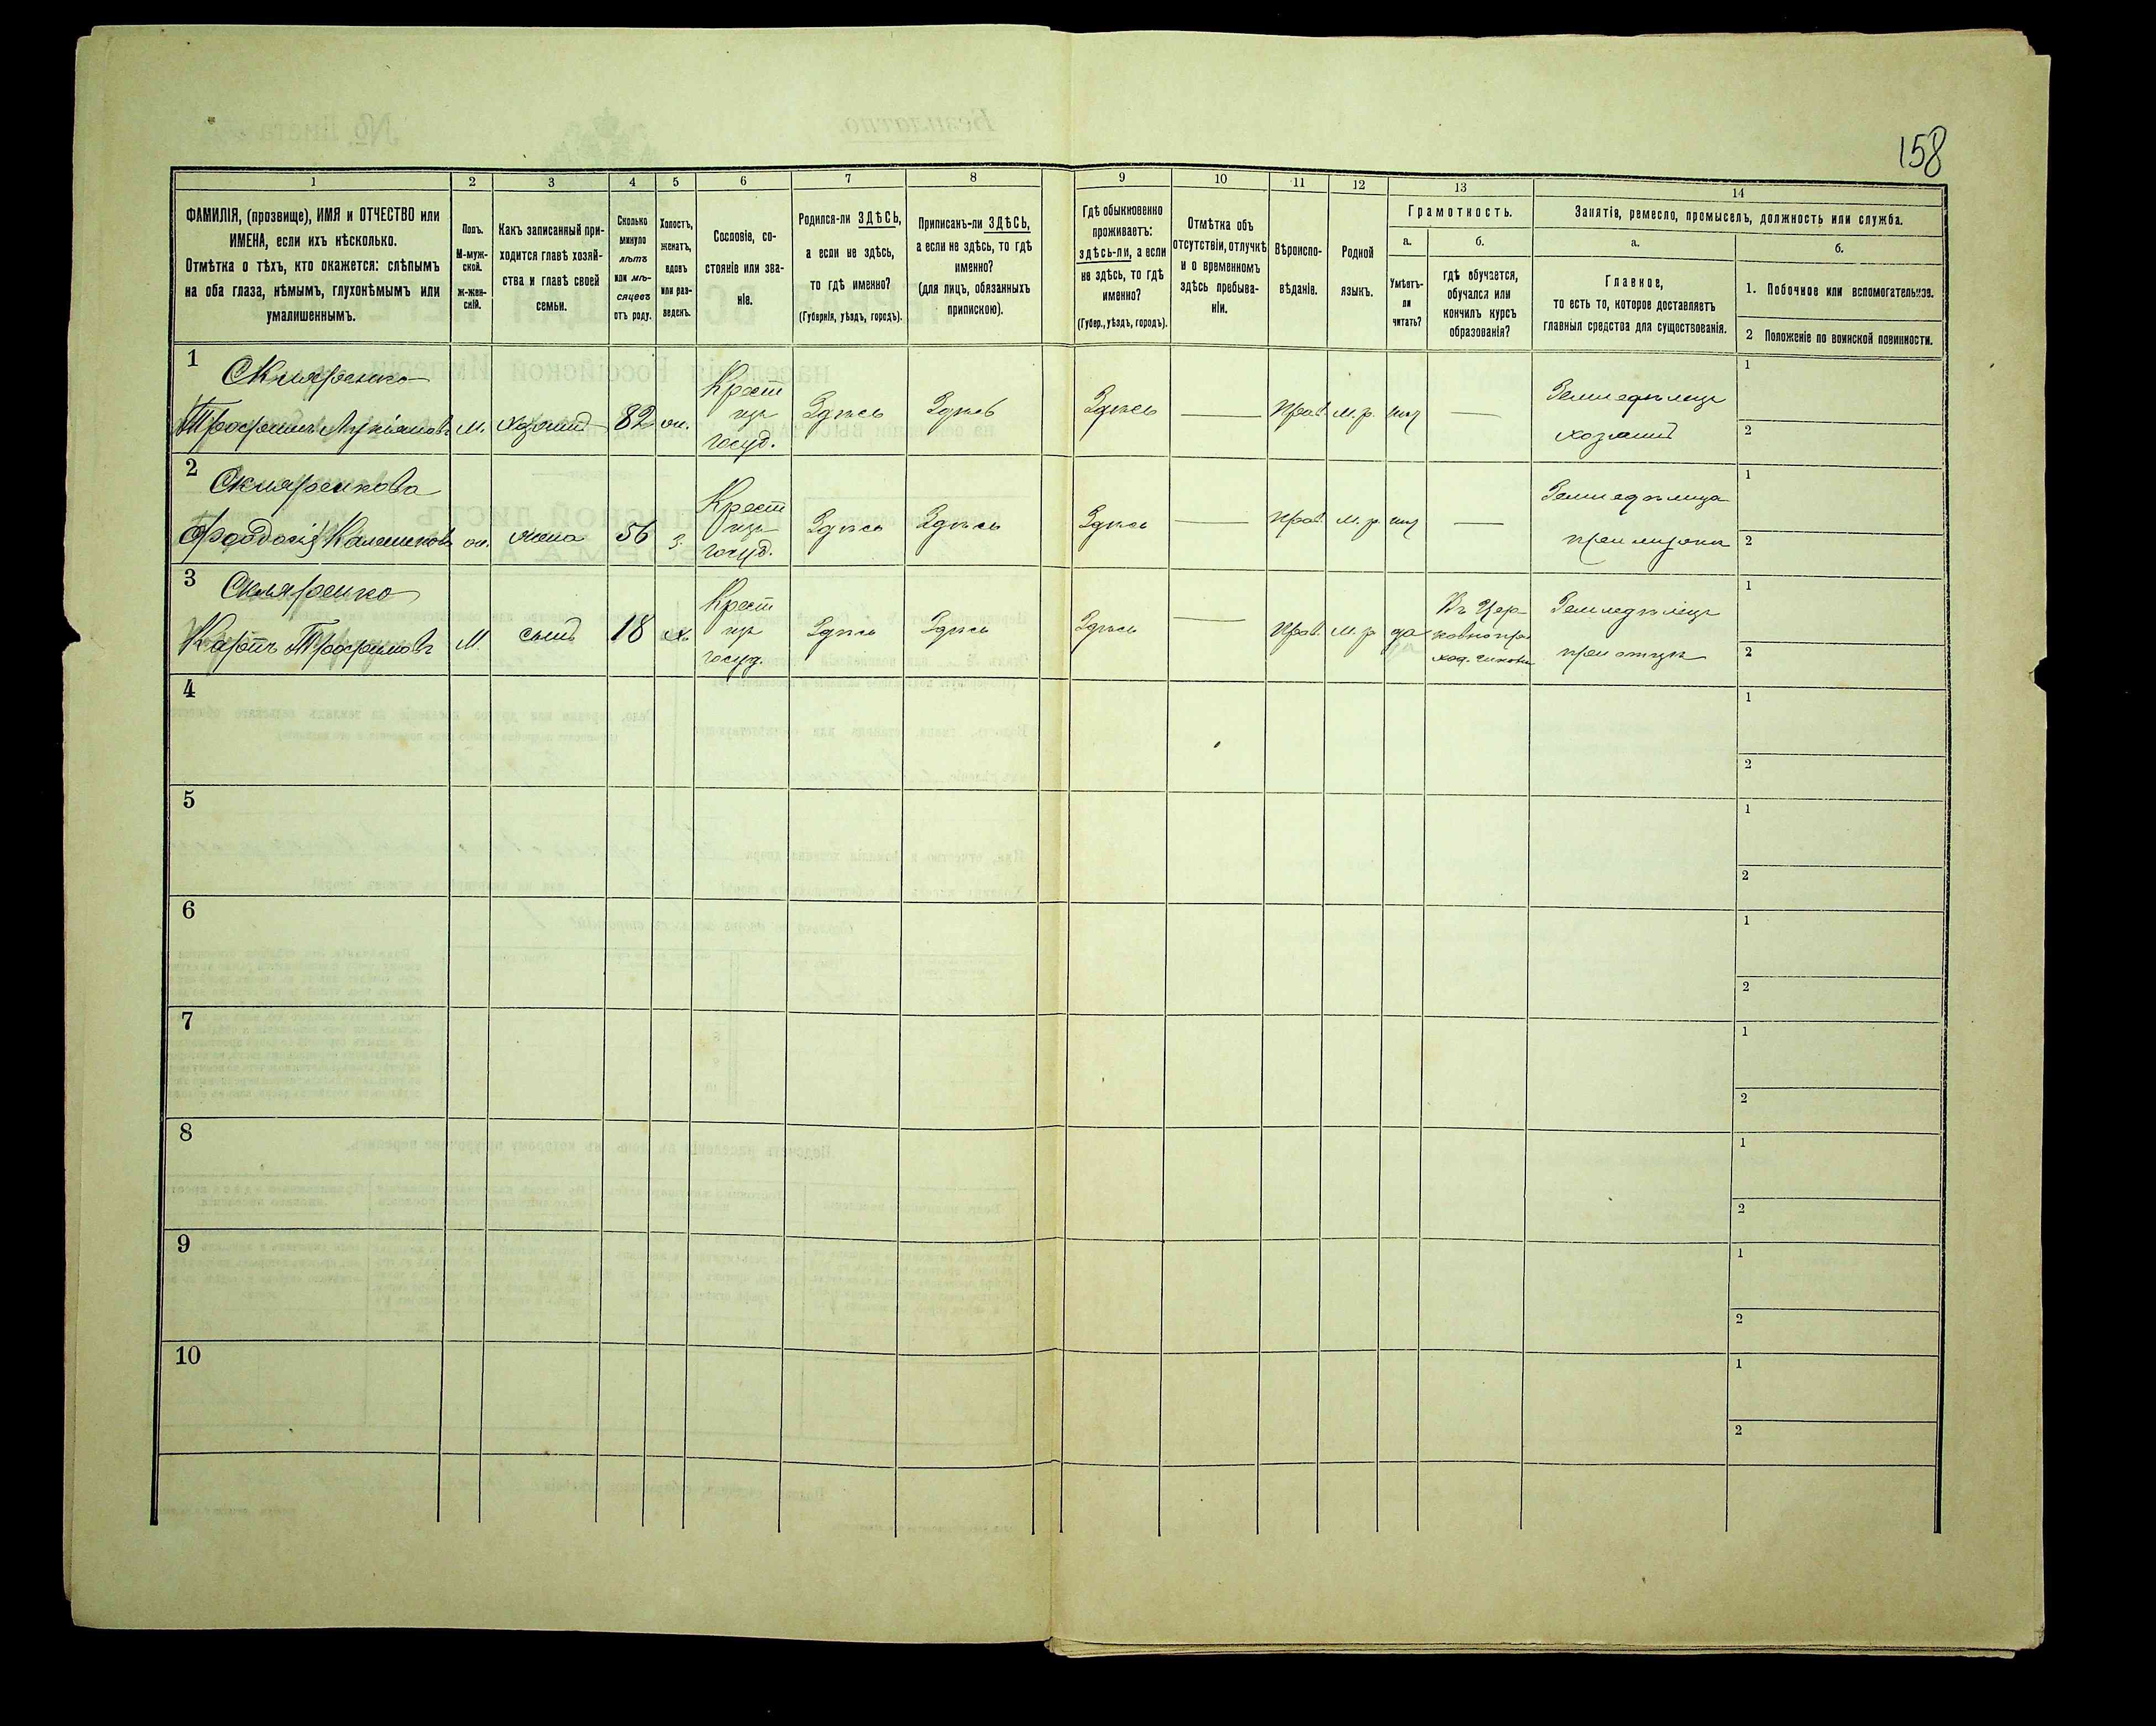 158
1
2
3
4
5
6
7
8
9
10
11
12
13
14
ФАМИЛІЯ, (прозвище), ИМЯ и ОТЧЕСТВО или
ИМЕНА, если ихъ нѣсколько.
Отмѣтка о тѣхъ, кто окажется: слѣпымъ
на оба глаза, нѣмымъ, глухонѣмымъ или
умалишеннымъ.
Полъ.
М-муж-
ской.
ж-жен-
скій.
Какъ записанный при-
ходится главѣ хозяй-
ства и главѣ своей
семьи.
Сколько
минуло
лѣтъ
или мѣ-
сяцевъ
отъ роду.
Холостъ,
женатъ,
вдовъ
или раз-
веденъ.
Сословіе, со-
стояніе или зва-
ніе.
Родился-ли ЗДѢСЬ,
а если не здѣсь,
то гдѣ именно?
(Губернія, уѣздъ, городъ).
Приписанъ-ли ЗДѢСЬ,
а если не здѣсь, то гдѣ
именно?
(для лицъ, обязанныхъ
припискою).
Гдѣ обыкновенно
проживаетъ:
здѣсь-ли, а если
не здѣсь, то гдѣ
именно?
(Губер., уѣздъ, городъ).
Отмѣтка объ
отсутствіи, отлучкѣ
и о временномъ
здѣсь пребыва-
ніи.
Вѣроиспо-
вѣданіе.
Родной
языкъ.
Грамотность.
а.
Умѣетъ-
ли
читать?
б.
гдѣ обучается,
обучался или
кончилъ курсъ
образованія?
Занятіе, ремесло, промыселъ, должность или служба.
а.
Главное,
то есть то, которое доставляетъ
главныя средства для существованія.
б.
1. Побочное или вспомогательное.
2 Положеніе по воинской повинности.
1
Скляренко
Трофимъ Лукіановъ
м.
хозяинъ
82
ж.
Крест
изъ
госуд.
Здѣсь
Здѣсь
Здѣсь
—
Прав.
м. р.
—
Земледѣлецъ
хозяинъ
1
2
2
Скляренкова
ж.
жена
56
з.
Крест
изъ
госуд.
Здѣсь
Здѣсь
Здѣсь
—
Прав.
м. р.
—
Земледѣлица
при мужѣ
1
2
3
Скляренко
Карпъ Трофимовъ
М.
сынъ
18
х.
Крест
изъ
госуд.
Здѣсь
Здѣсь
Здѣсь
—
Прав.
м. р.
да
Въ Цер-
ковнопри
ход.
Земледѣлецъ
при отцѣ
1
2
4
1
2
5
1
2
6
1
2
7
1
2
8
1
2
9
1
2
10
1
2